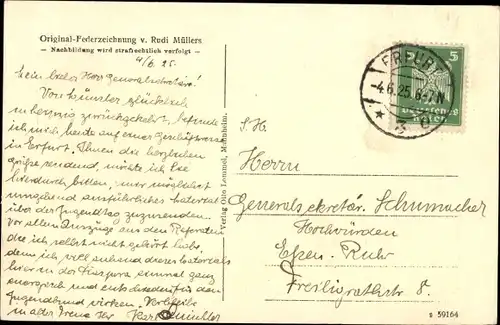 Original-Federzeichnung v. Rudi Müllers
— Nachbildung wird strafrechtlich verfolgt —
4/6.25.
Mein lieber Herr Generalsekretär!
Von Münster glücklich
zurückgekehrt, befinde
ich mich heute auf einer Geschäftsreise
in Erfurt. Ihnen die herzlichsten
Grüße sendend, möchte ich Sie
hierdurch bitten, mir möglichst
umgehend ausführliches Material
über die Jugendtag zuzusenden.
Vor allem Auszüge aus den Referaten
die ich selbst nicht gehört habe,
denn ich will anhand dieses Materials
hier in der Diaspora einmal ganz
energisch und entschieden für den
Jugendbund wirken.
in alter Treue Ihr
Verlag Otto Lommel, Mannheim.
ERFURT
-4.6.25. 6-7 N
* 5
5
Deutsches
Reich
S. H.
Herrn
Generalsekretär Schumacher
Hochwürden
Essen-Ruhr
Freiligrathstr 8.
59164